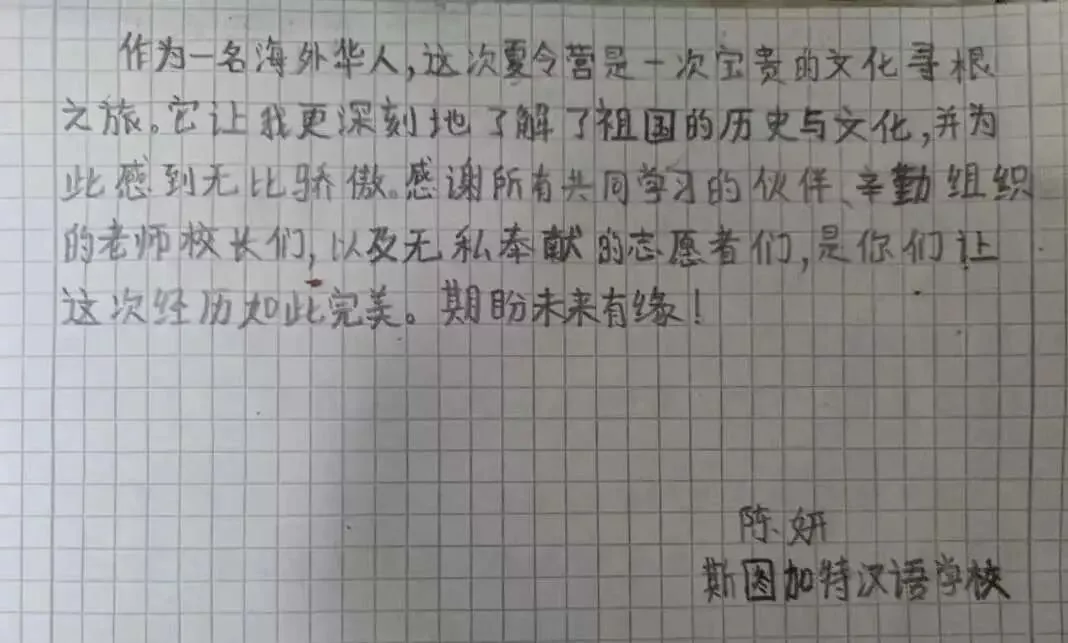 作为一名海外华人,这次夏令营是一次宝贵的文化寻根
之旅。它让我更深刻地了解了祖国的历史与文化,并为
此感到无比骄傲。感谢所有共同学习的伙伴、辛勤组织
的老师校长们,以及无私奉献的志愿者们,是你们让
这次经历如此完美。期盼未来有缘!
陈妍
斯图加特汉语学校